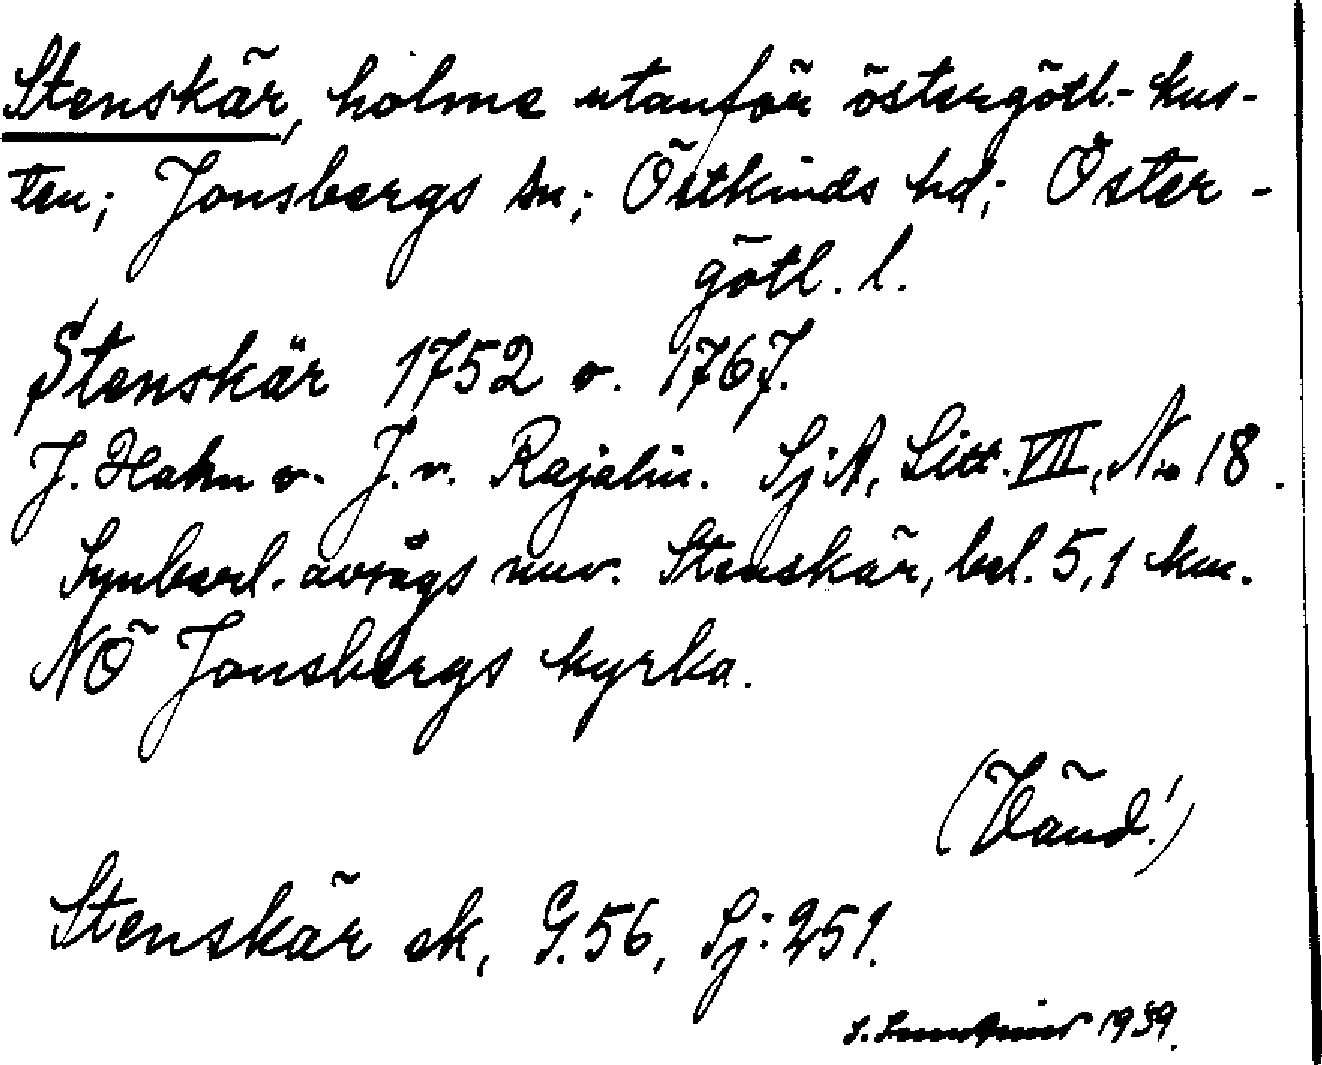 Stenskär, holme utanför östergötl.- kus-
ten; Jonsbergs sn; Östkinds hd; Öster-
götl. l.
Stenskär 1752 o. 1767.
J. Hahn o. J. v. Rajalin. SjA, Litt. VII, No 18.
Synberl. avsågs nuv. Stenskär, bel. 5,1 km.
NÖ Jonsbergs kyrka.
(Vänd!)
Stenskär ek, G. 56, Sj: 251.
1939.